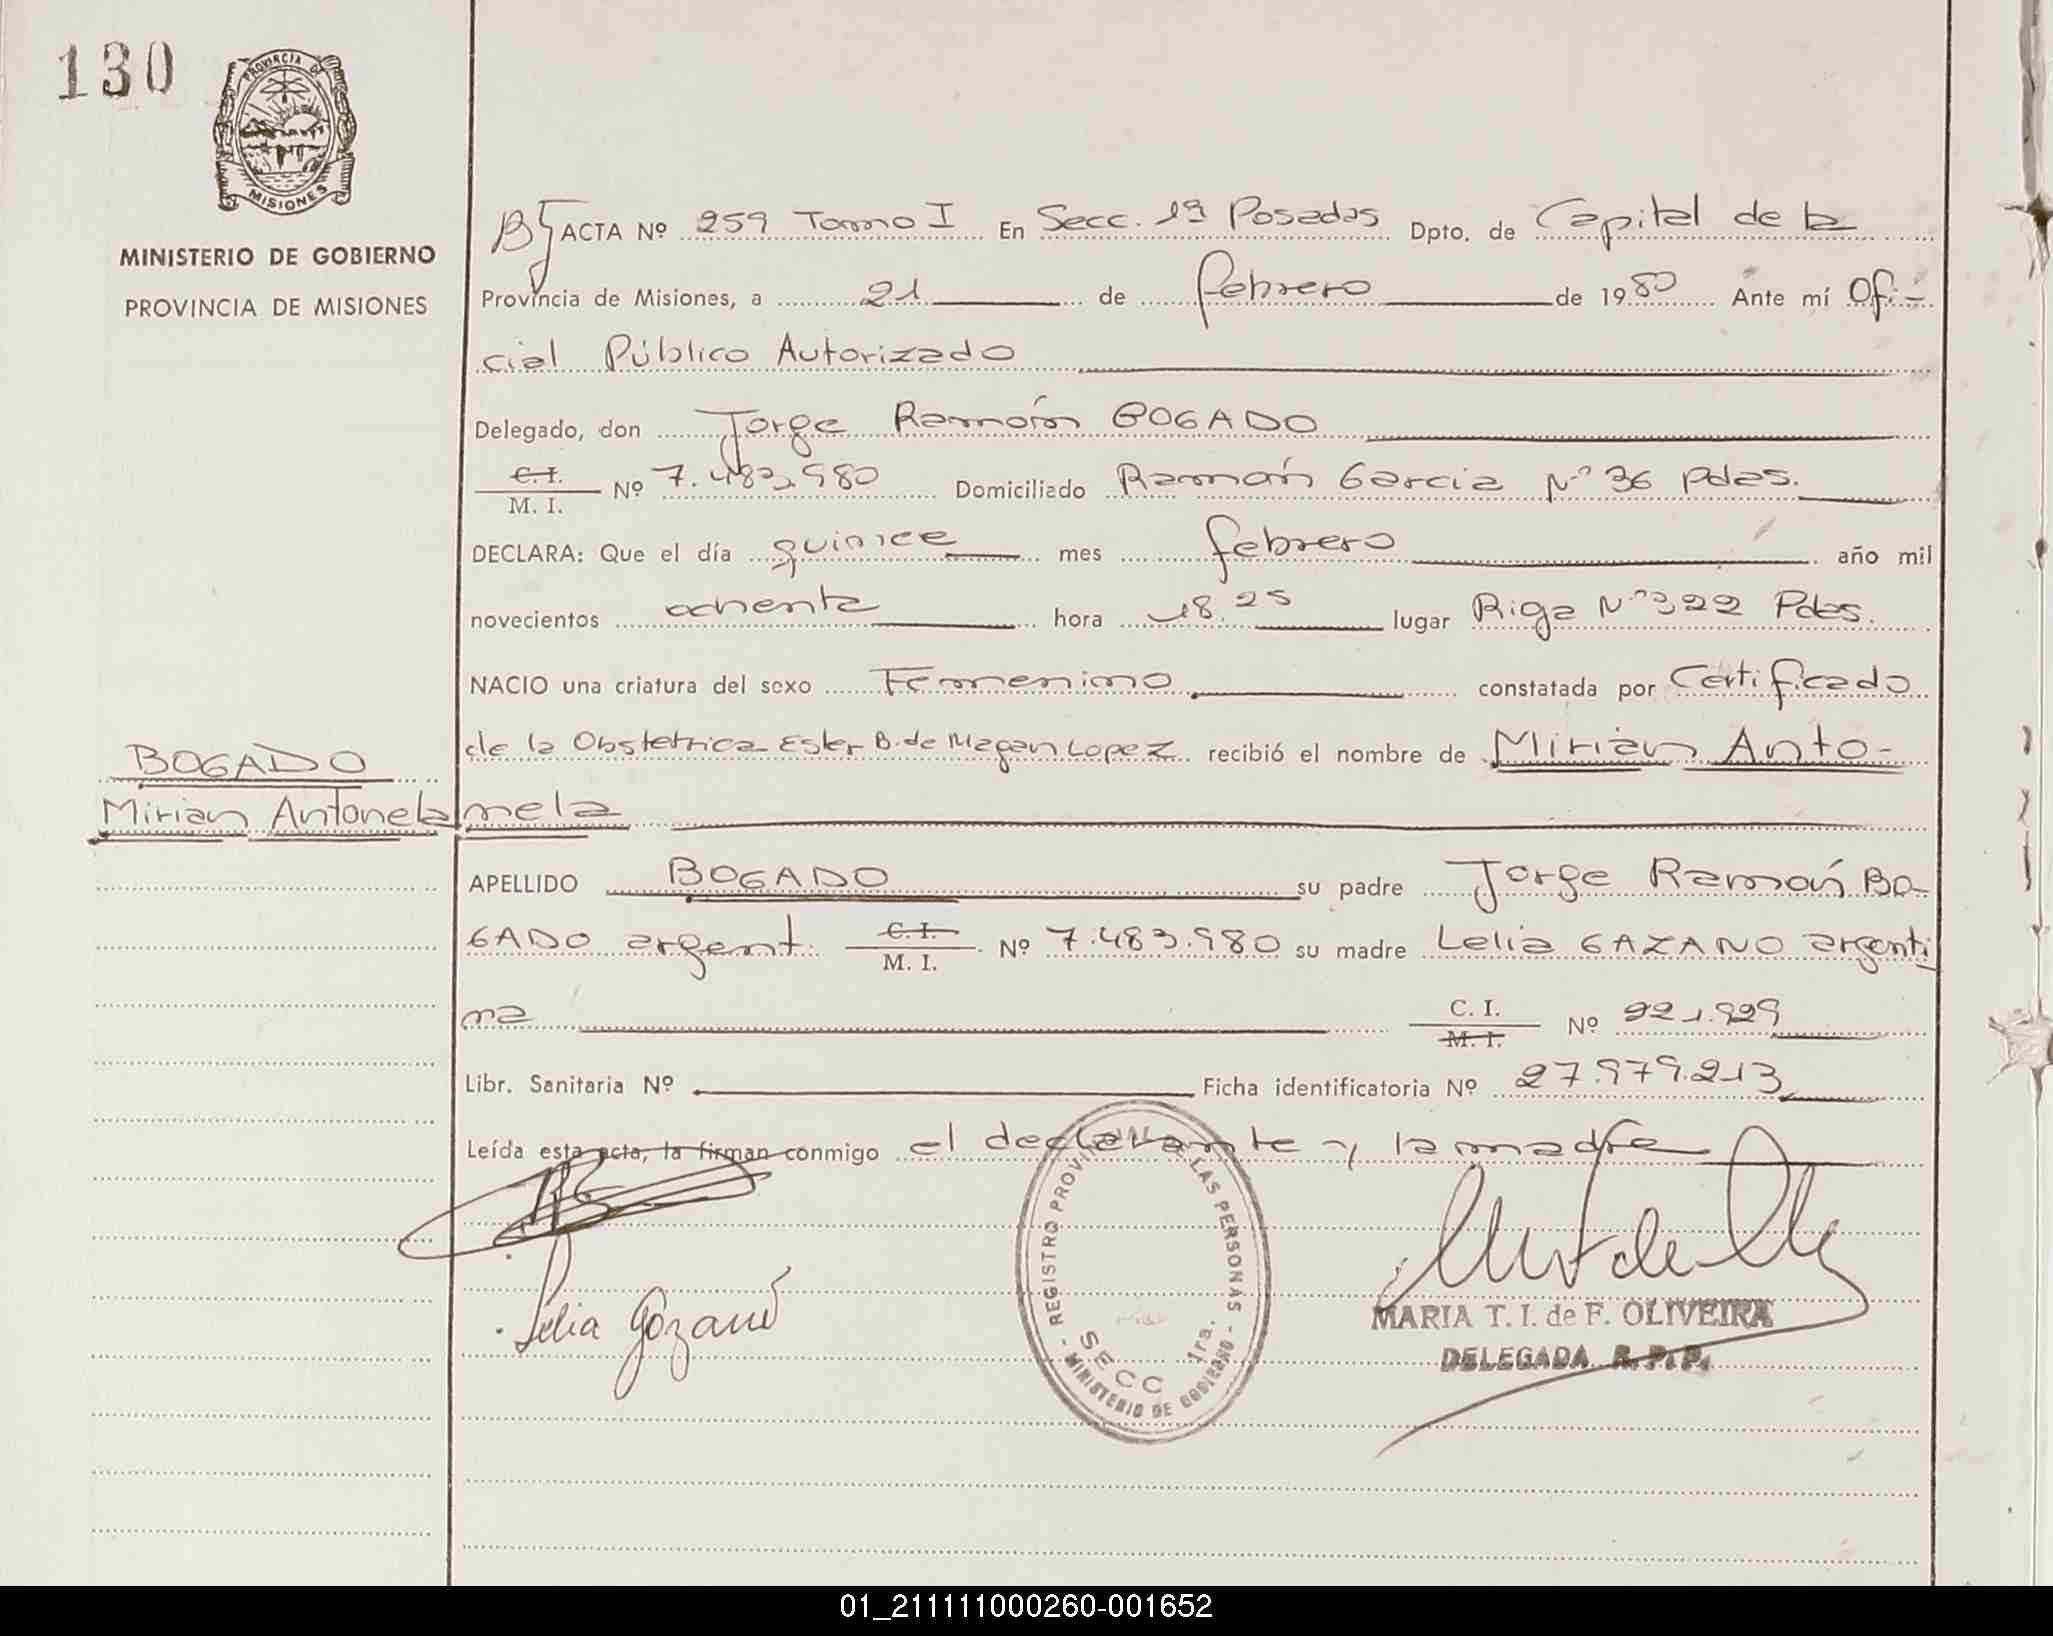 130
PROVINCIA DE
MISIONES
MINISTERIO DE GOBIERNO
PROVINCIA DE MISIONES
ACTA Nº 259 Tomo I En Secc. 1ª Posadas Dpto. de Capital de la
Provincia de Misiones, a 21 de febrero de 1980 Ante mí Ofi-
cial Público Autorizado
Delegado, don Jorge Ramón BOGADO
C. I.
M. I. Nº 7.483.980 Domiciliado Ramón Garcia Nº 36 Pdas.
DECLARA: Que el día quince mes febrero año mil
novecientos ochenta hora 18.25 lugar Riga Nº 322 Pdas.
NACIO una criatura del sexo Femenino constatada por Certificado
de la Obstetrica Ester B. de Magan Lopez recibió el nombre de Mirian Anto-
nela
BOGADO
Mirian Antonela
APELLIDO BOGADO su padre Jorge Ramón BO-
GADO argent. C. I. M. I. Nº 7.483.980 su madre Lelia GAZANO argenti
na C. I. M. I. Nº 221.929
Libr. Sanitaria Nº Ficha identificatoria Nº 27.979.213
Leída esta acta, la firman conmigo el declarante y la madre
Lelia Gozano
REGISTRO PROVINCIAL LAS PERSONAS
SECC 1ra.
MINISTERIO DE GOBIERNO
MARIA T. I. de F. OLIVEIRA
DELEGADA R. P. P.
01_211111000260-001652